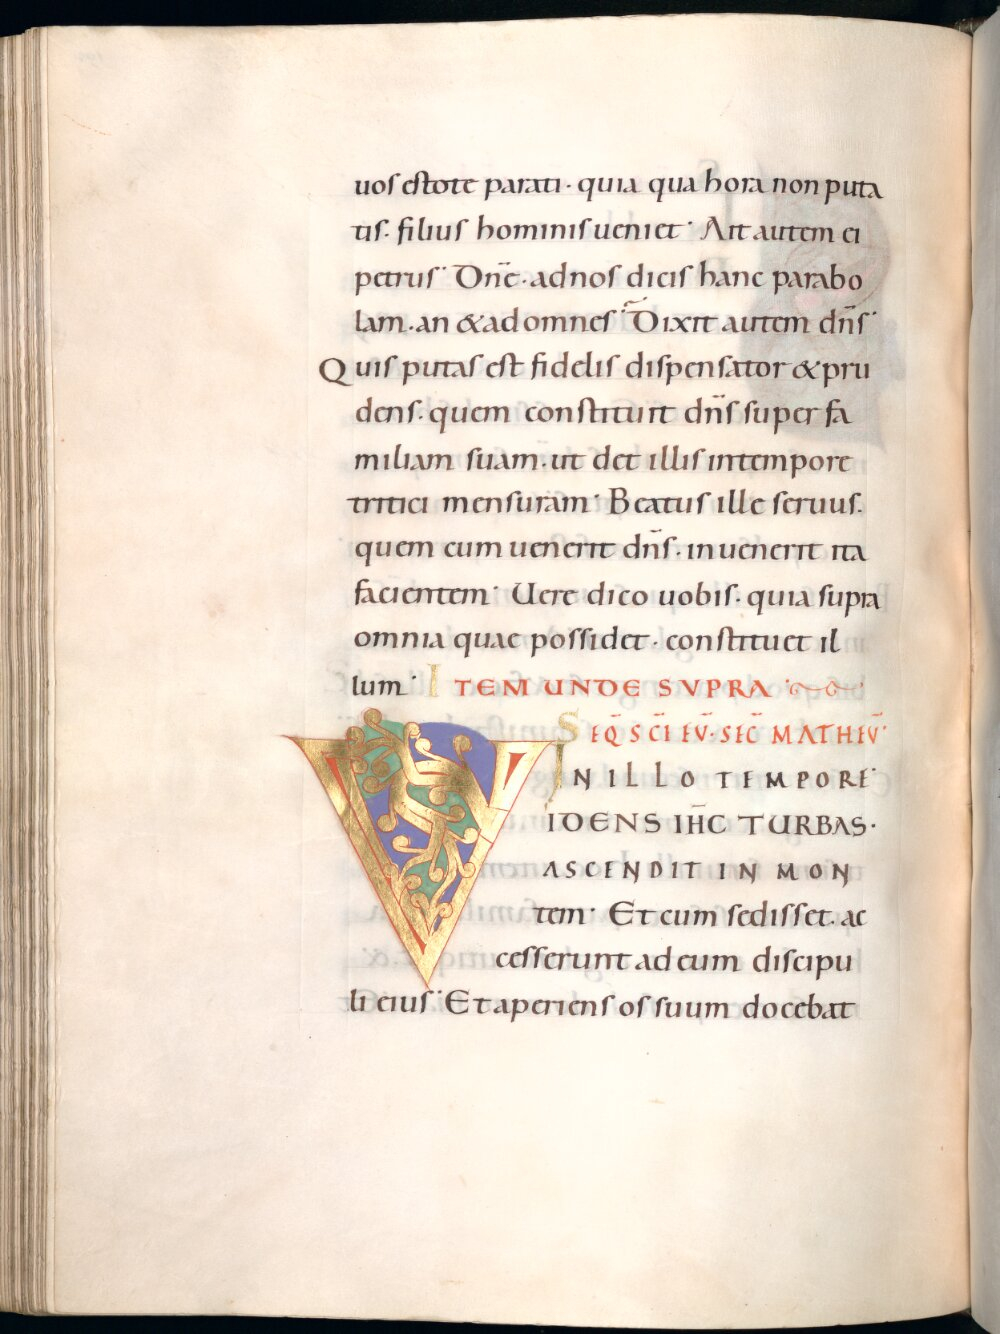 uos estote parati· quia qua hora non puta
tis· filius hominis ueniet· Ait autem ei
petrus· Dnē· ad nos dicis hanc parabo
lam· an & ad omnes· Dixit autem dn̄s·
Quis putas est fidelis dispensator & pru
dens· quem constituit dn̄s super fa
miliam suam· ut det illis in tempore
tritici mensuram· Beatus ille seruus·
quem cum uenerit dn̄s· inuenerit ita
facientem· Uere dico uobis· quia supra
omnia quae possidet· constituet il
lum· ITEM UNDE SVPRA
SEQ̄S SC̄I EV̄· SEC̄ MATHEV̄·
IN ILLO TEMPORE·
VIDENS IH̄C TURBAS·
ASCENDIT IN MON
tem· Et cum sedisset· ac
cesserunt ad eum discipu
li eius· Et aperiens os suum docebat